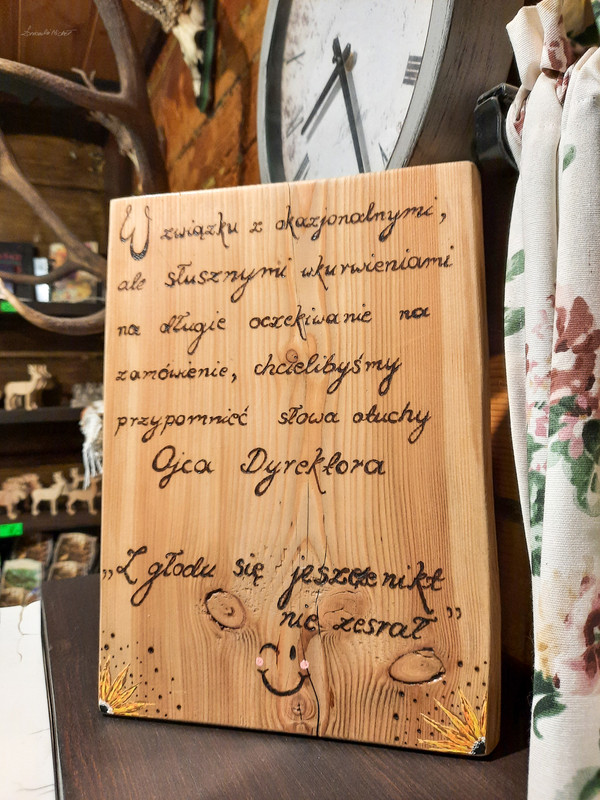 W związku z okazjonalnymi,
ale słusznymi wkurwieniami
na długie oczekiwanie na
zamówienie, chcielibyśmy
przypomnieć słowa otuchy
Ojca Dyrektora
„Z głodu się jeszcze nikt
nie zesrał”